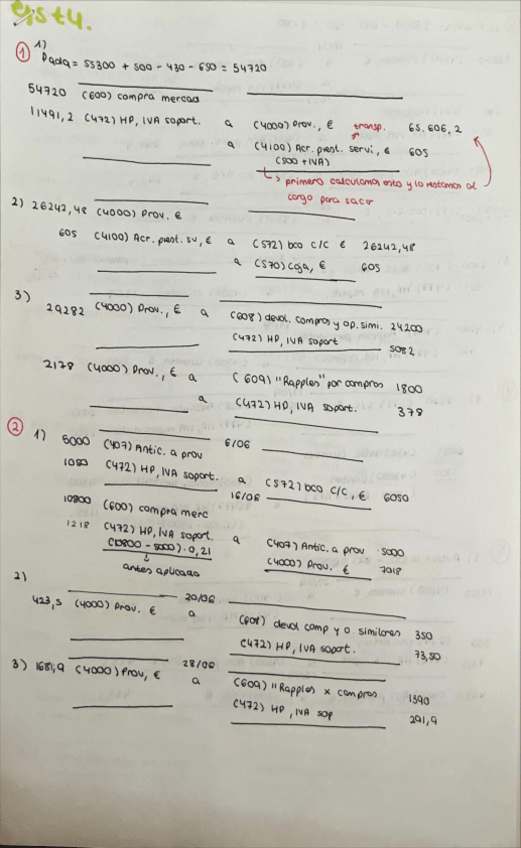 ejs t4.
① 1)
Pada = 55300 + 500 - 430 - 650 = 54720
54720 (600) compra mercad
11491,2 (472) HP, IVA soport. a (4000) Prov., € transp. 65.606,2
a (4100) Acr. prest. servi, € 605
(500 + IVA)
↳ primero calculamos esto y lo restamos al
cargo para sacar
2) 26242,48 (4000) Prov. €
605 (4100) Acr. prest. sv, € a (572) bco c/c € 26242,48
a (570) caja, € 605
3) 29282 (4000) Prov., € a (608) devol. compras y op. simi. 24200
(472) HP, IVA soport 5082
2178 (4000) Prov., € a (609) "Rapples" por compras 1800
a (472) HP, IVA soport. 378
② 1) 5000 (407) Antic. a prov 6/06
1050 (472) HP, IVA soport. a (572) bco c/c, € 6050
16/06
10800 (600) compra merc
1218 (472) HP, IVA soport. a (407) Antic. a prov 5000
(10800 - 5000) · 0,21 (4000) Prov. € 7018
antes aplicado
2) 20/06
423,5 (4000) Prov. € a (608) devol comp y o similares 350
(472) HP, IVA soport. 73,50
3) 28/06
1681,9 (4000) Prov, € a (609) "Rapples x compras 1390
(472) HP, IVA sop 291,9